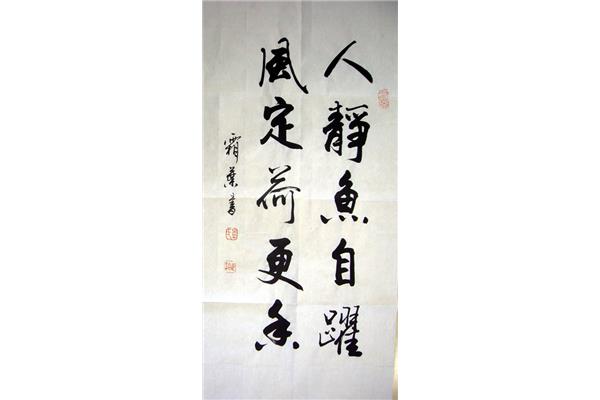 人靜魚自躍
風定荷更香
霜葉書